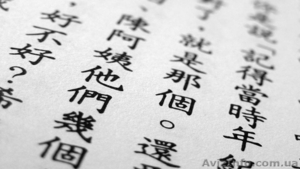 是說「記得當時年紀
了，就是那個。還
陳阿姨他們幾個
好不好？希